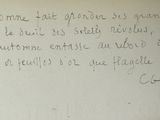 omne fait gronder ses gran
le deuil des soleils révolus,
automne entasse au rebord d
or feuilles d'or que flagelle
CG